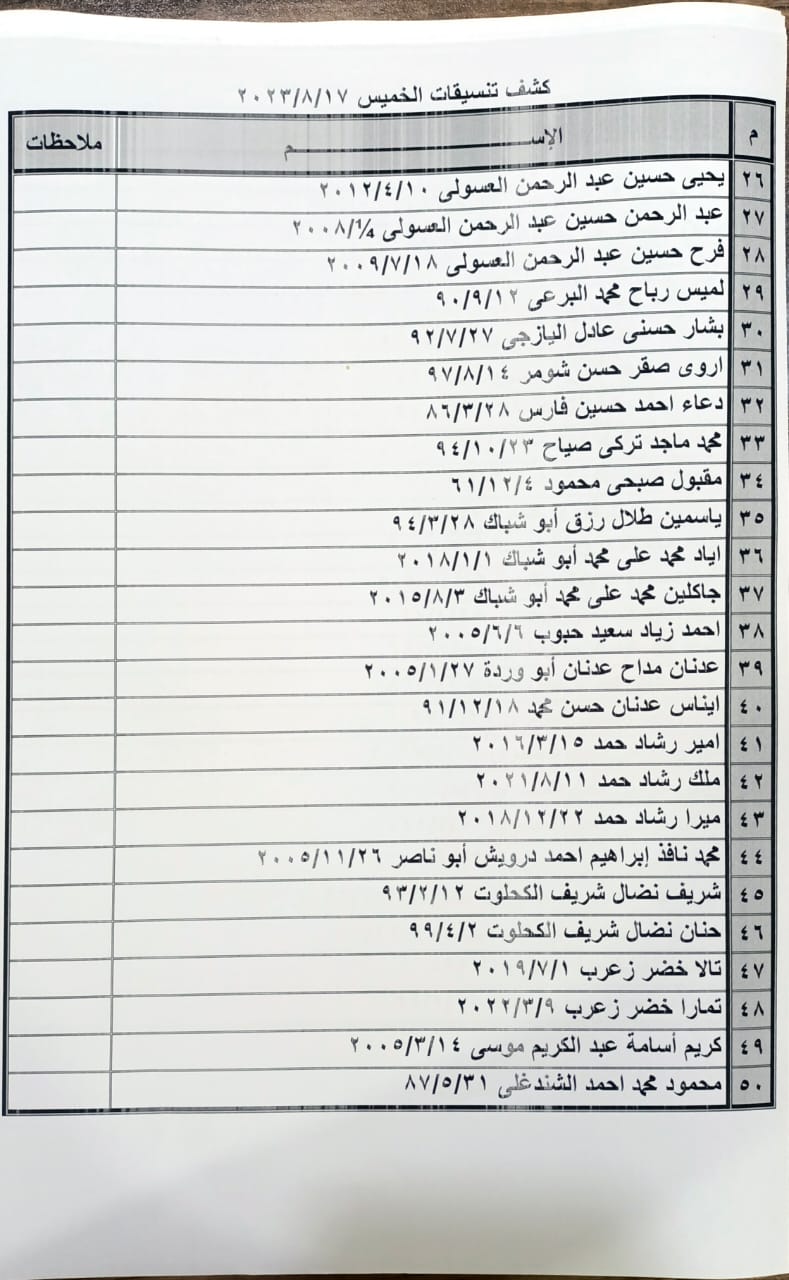 كشف تنسيقات الخميس ٢٠٢٣/٨/١٧
م الإســـــم ملاحظات
٢٦ يحيى حسين عبد الرحمن العسولى ٢٠١٢/٤/١٠
٢٧ عبد الرحمن حسين عبد الرحمن العسولى ٢٠٠٨/¼
٢٨ فرح حسين عبد الرحمن العسولى ٢٠٠٩/٧/١٨
٢٩ لميس رباح محمد البرعى ٩٠/٩/١٢
٣٠ بشار حسنى عادل اليازجي ٩٢/٧/٢٧
٣١ اروى صقر حسن شومر ٩٧/٨/١٤
٣٢ دعاء احمد حسين فارس ٨٦/٣/٢٨
٣٣ محمد ماجد تركى صياح ٩٤/١٠/٢٣
٣٤ مقبول صبحى محمود ٦١/١٢/٤
٣٥ ياسمين طلال رزق أبو شباك ٩٤/٣/٢٨
٣٦ اياد محمد على محمد أبو شباك ٢٠١٨/١/١
٣٧ جاكلين محمد على محمد أبو شباك ٢٠١٥/٨/٣
٣٨ احمد زياد سعيد حبوب ٢٠٠٥/٦/٦
٣٩ عدنان مداح عدنان أبو وردة ٢٠٠٥/١/٢٧
٤٠ ايناس عدنان حسن محمد ٩١/١٢/١٨
٤١ امير رشاد حمد ٢٠١٦/٣/١٥
٤٢ ملك رشاد حمد ٢٠٢١/٨/١١
٤٣ ميرا رشاد حمد ٢٠١٨/١٢/٢٢
٤٤ محمد نافذ إبراهيم احمد درويش أبو ناصر ٢٠٠٥/١١/٢٦
٤٥ شريف نضال شريف الكحلوت ٩٣/٢/١٢
٤٦ حنان نضال شريف الكحلوت ٩٩/٤/٢
٤٧ تالا خضر زعرب ٢٠١٩/٧/١
٤٨ تمارا خضر زعرب ٢٠٢٢/٣/٩
٤٩ كريم أسامة عبد الكريم موسى ٢٠٠٥/٣/١٤
٥٠ محمود محمد احمد الشندغلى ٨٧/٥/٣١